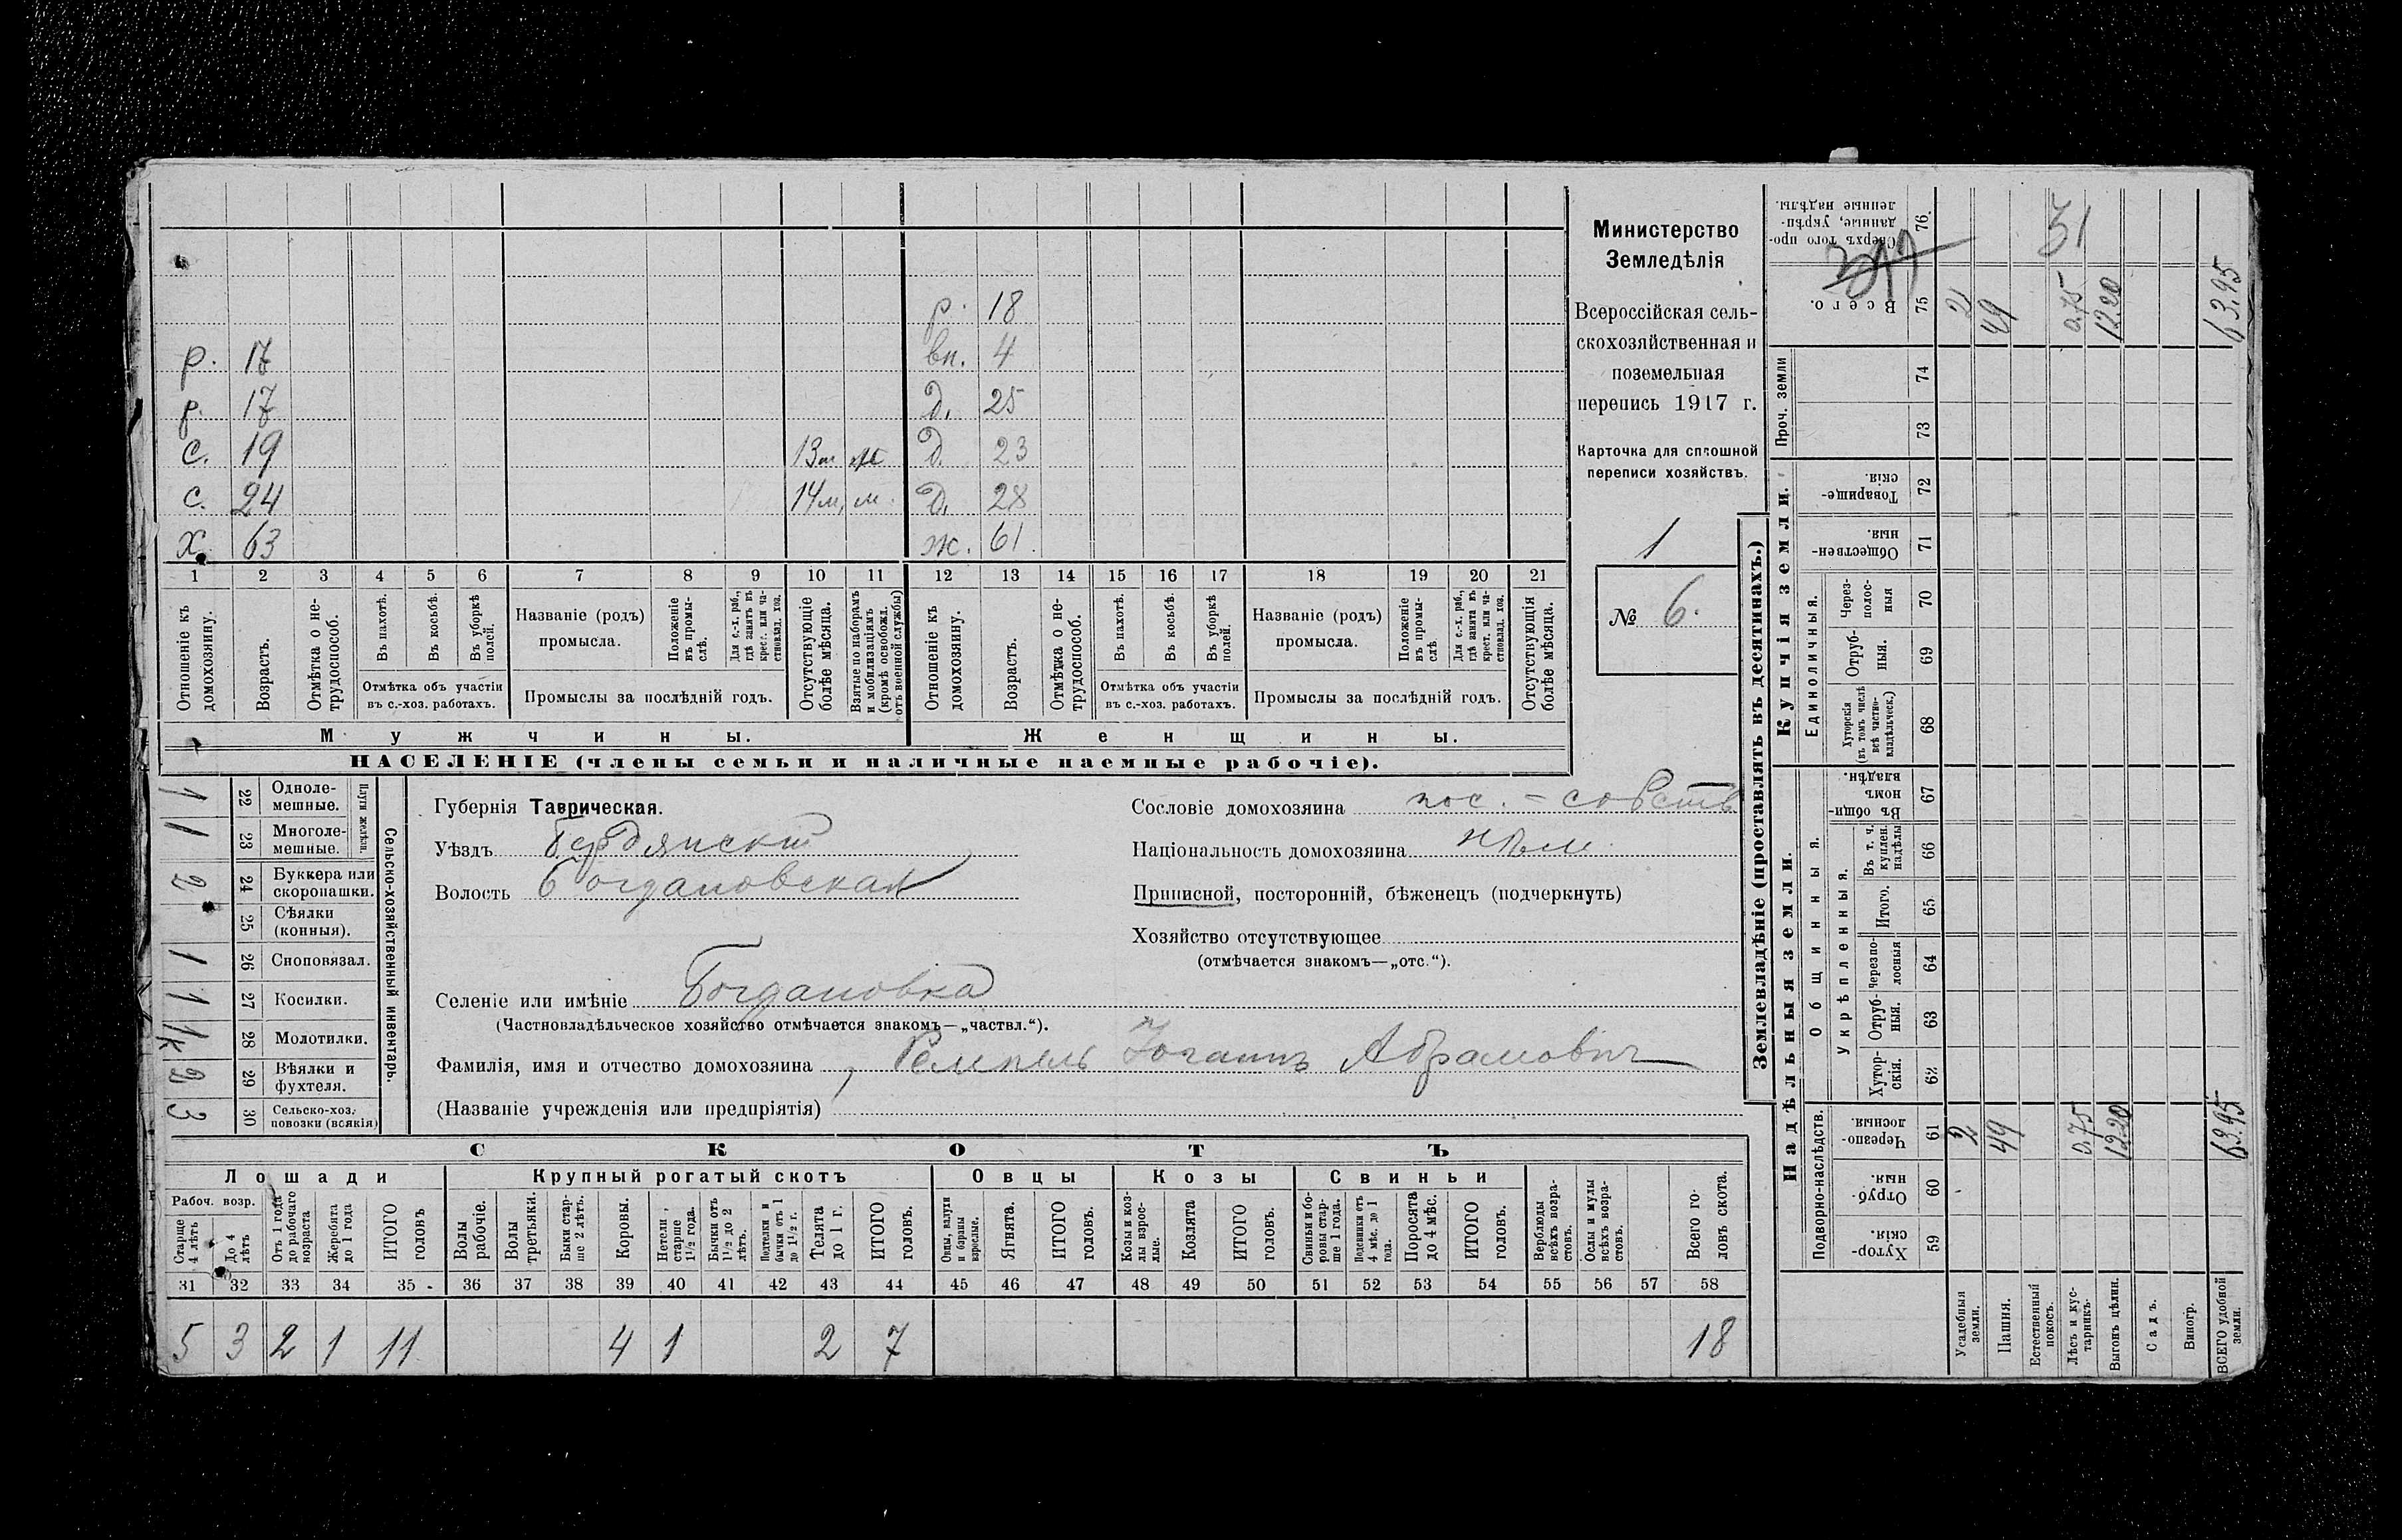 р. 18
р. 17 вн. 4
р. 17 Д. 25
с. 19 13м м Д. 23
с. 24 14м. м. Д. 28
х. 63 ж. 61.
1 2 3 4 5 6 7 8 9 10 11 12 13 14 15 16 17 18 19 20 21
Отношеніе къ домохозяину.
Возрастъ.
Отмѣтка о не-трудоспособ.
Въ пахотѣ.
Въ косьбѣ.
Въ уборкѣ полей.
Отмѣтка объ участіи
въ с.-хоз. работахъ.
Названіе (родъ)
промысла.
Положеніе въ промы-слѣ.
Для с.-х. раб., гдѣ занятъ въ крест. или ча-стновлад. хоз.
Промыслы за послѣдній годъ.
Отсутствующіе болѣе мѣсяца.
Взятые по наборамъ и мобилизаціямъ (кромѣ освобожд. отъ военной службы)
Отношеніе къ домохозяину.
Возрастъ.
Отмѣтка о не-трудоспособ.
Въ пахотѣ.
Въ косьбѣ.
Въ уборкѣ полей.
Отмѣтка объ участіи
въ с.-хоз. работахъ.
Названіе (родъ)
промысла.
Положеніе въ промы-слѣ
Для с.-х. раб., гдѣ занята въ крест. или ча-стновлад. хоз.
Промыслы за послѣдній годъ.
Отсутствующія болѣе мѣсяца.
Мужчины.
Женщины.
НАСЕЛЕНІЕ (члены семьи и наличные наемные рабочіе).
Министерство
Земледѣлія
Всероссійская сель-
скохозяйственная и
поземельная
перепись 1917 г.
Карточка для сплошной
переписи хозяйствъ.
1
№ 6.
Сельско-хозяйственный инвентарь.
Плуги желѣзн.
1 22 Одноле-мешные.
1 23 Многоле-мешные.
2 24 Буккера или скоропашки.
25 Сѣялки (конныя).
1 26 Сноповязал.
1 27 Косилки.
1к 28 Молотилки.
2 29 Вѣялки и фухтеля.
3 30 Сельско-хоз. повозки (всякія)
Губернія Таврическая.
Уѣздъ Бердянскій
Волость Богдановская
Селеніе или имѣніе Богдановка
(Частновладѣльческое хозяйство отмѣчается знакомъ—„частвл.“).
Фамилія, имя и отчество домохозяина Ремпель Иоганнъ Абрамович
(Названіе учрежденія или предпріятія)
Сословіе домохозяина пос. - собств
Національность домохозяина нѣм.
Приписной, посторонній, бѣженецъ (подчеркнуть)
Хозяйство отсутствующее
(отмѣчается знакомъ—„отс.“).
СКОТЪ
Лошади
Крупный рогатый скотъ
Овцы
Козы
Свиньи
Рабоч. возр.
Старше 4 лѣтъ
До 4 лѣтъ
Отъ 1 года до рабочаго возраста
Жеребята до 1 года
ИТОГО головъ
Волы рабочіе.
Волы третьяки.
Быки стар-ше 2 лѣтъ.
Коровы.
Нетели, старше 1½ года.
Бычки отъ 1½ до 2 лѣтъ.
Подтелки и бычки отъ 1 до 1½ г.
Телята до 1 г.
ИТОГО головъ.
Овцы, валухи и бараны взрослые.
Ягнята.
ИТОГО головъ.
Козы и коз-лы взрос-лые.
Козлята
ИТОГО головъ.
Свиньи и бо-ровы стар-ше 1 года.
Подсвинки отъ 4 мѣс. до 1 года.
Поросята до 4 мѣс.
ИТОГО головъ.
Верблюды всѣхъ возра-стовъ.
Ослы и мулы всѣхъ возра-стовъ.
Всего го-ловъ скота.
31 32 33 34 35 36 37 38 39 40 41 42 43 44 45 46 47 48 49 50 51 52 53 54 55 56 57 58
5 3 2 1 11 4 1 2 7 18
Землевладѣніе (проставлять въ десятинахъ.)
Надѣльныя земли.
Купчія земли.
Проч. земли
Подворно-наслѣдств.
Общинныя.
Укрѣпленныя.
Единоличныя.
Хутор-скія. 59
Отруб-ныя. 60
Черезпо-лосныя. 61
Хутор-скія. 62
Отруб-ныя. 63
Черезпо-лосныя 64
Итого. 65
Въ т. ч. куплен. надѣлы 66
Въ общи-номъ владѣн. 67
Хуторскія (въ томъ числѣ всѣ частно-владѣльческ.) 68
Отруб-ныя. 69
Через-полос-ныя 70
Обществен-ныя. 71
Товарище-скія. 72
73
74
Всего. 75
Сверхъ того про-данные, укрѣп-ленные надѣлы. 76.
51
Усадебныя земли. 2 2
Пашня. 49 49
Естественный покосъ.
Лѣсъ и кус-тарникъ. 0,75 0,75
Выгонъ цѣлин. 12.20 12.20
Садъ.
Виногр.
ВСЕГО удобной земли. 63.95 63.95